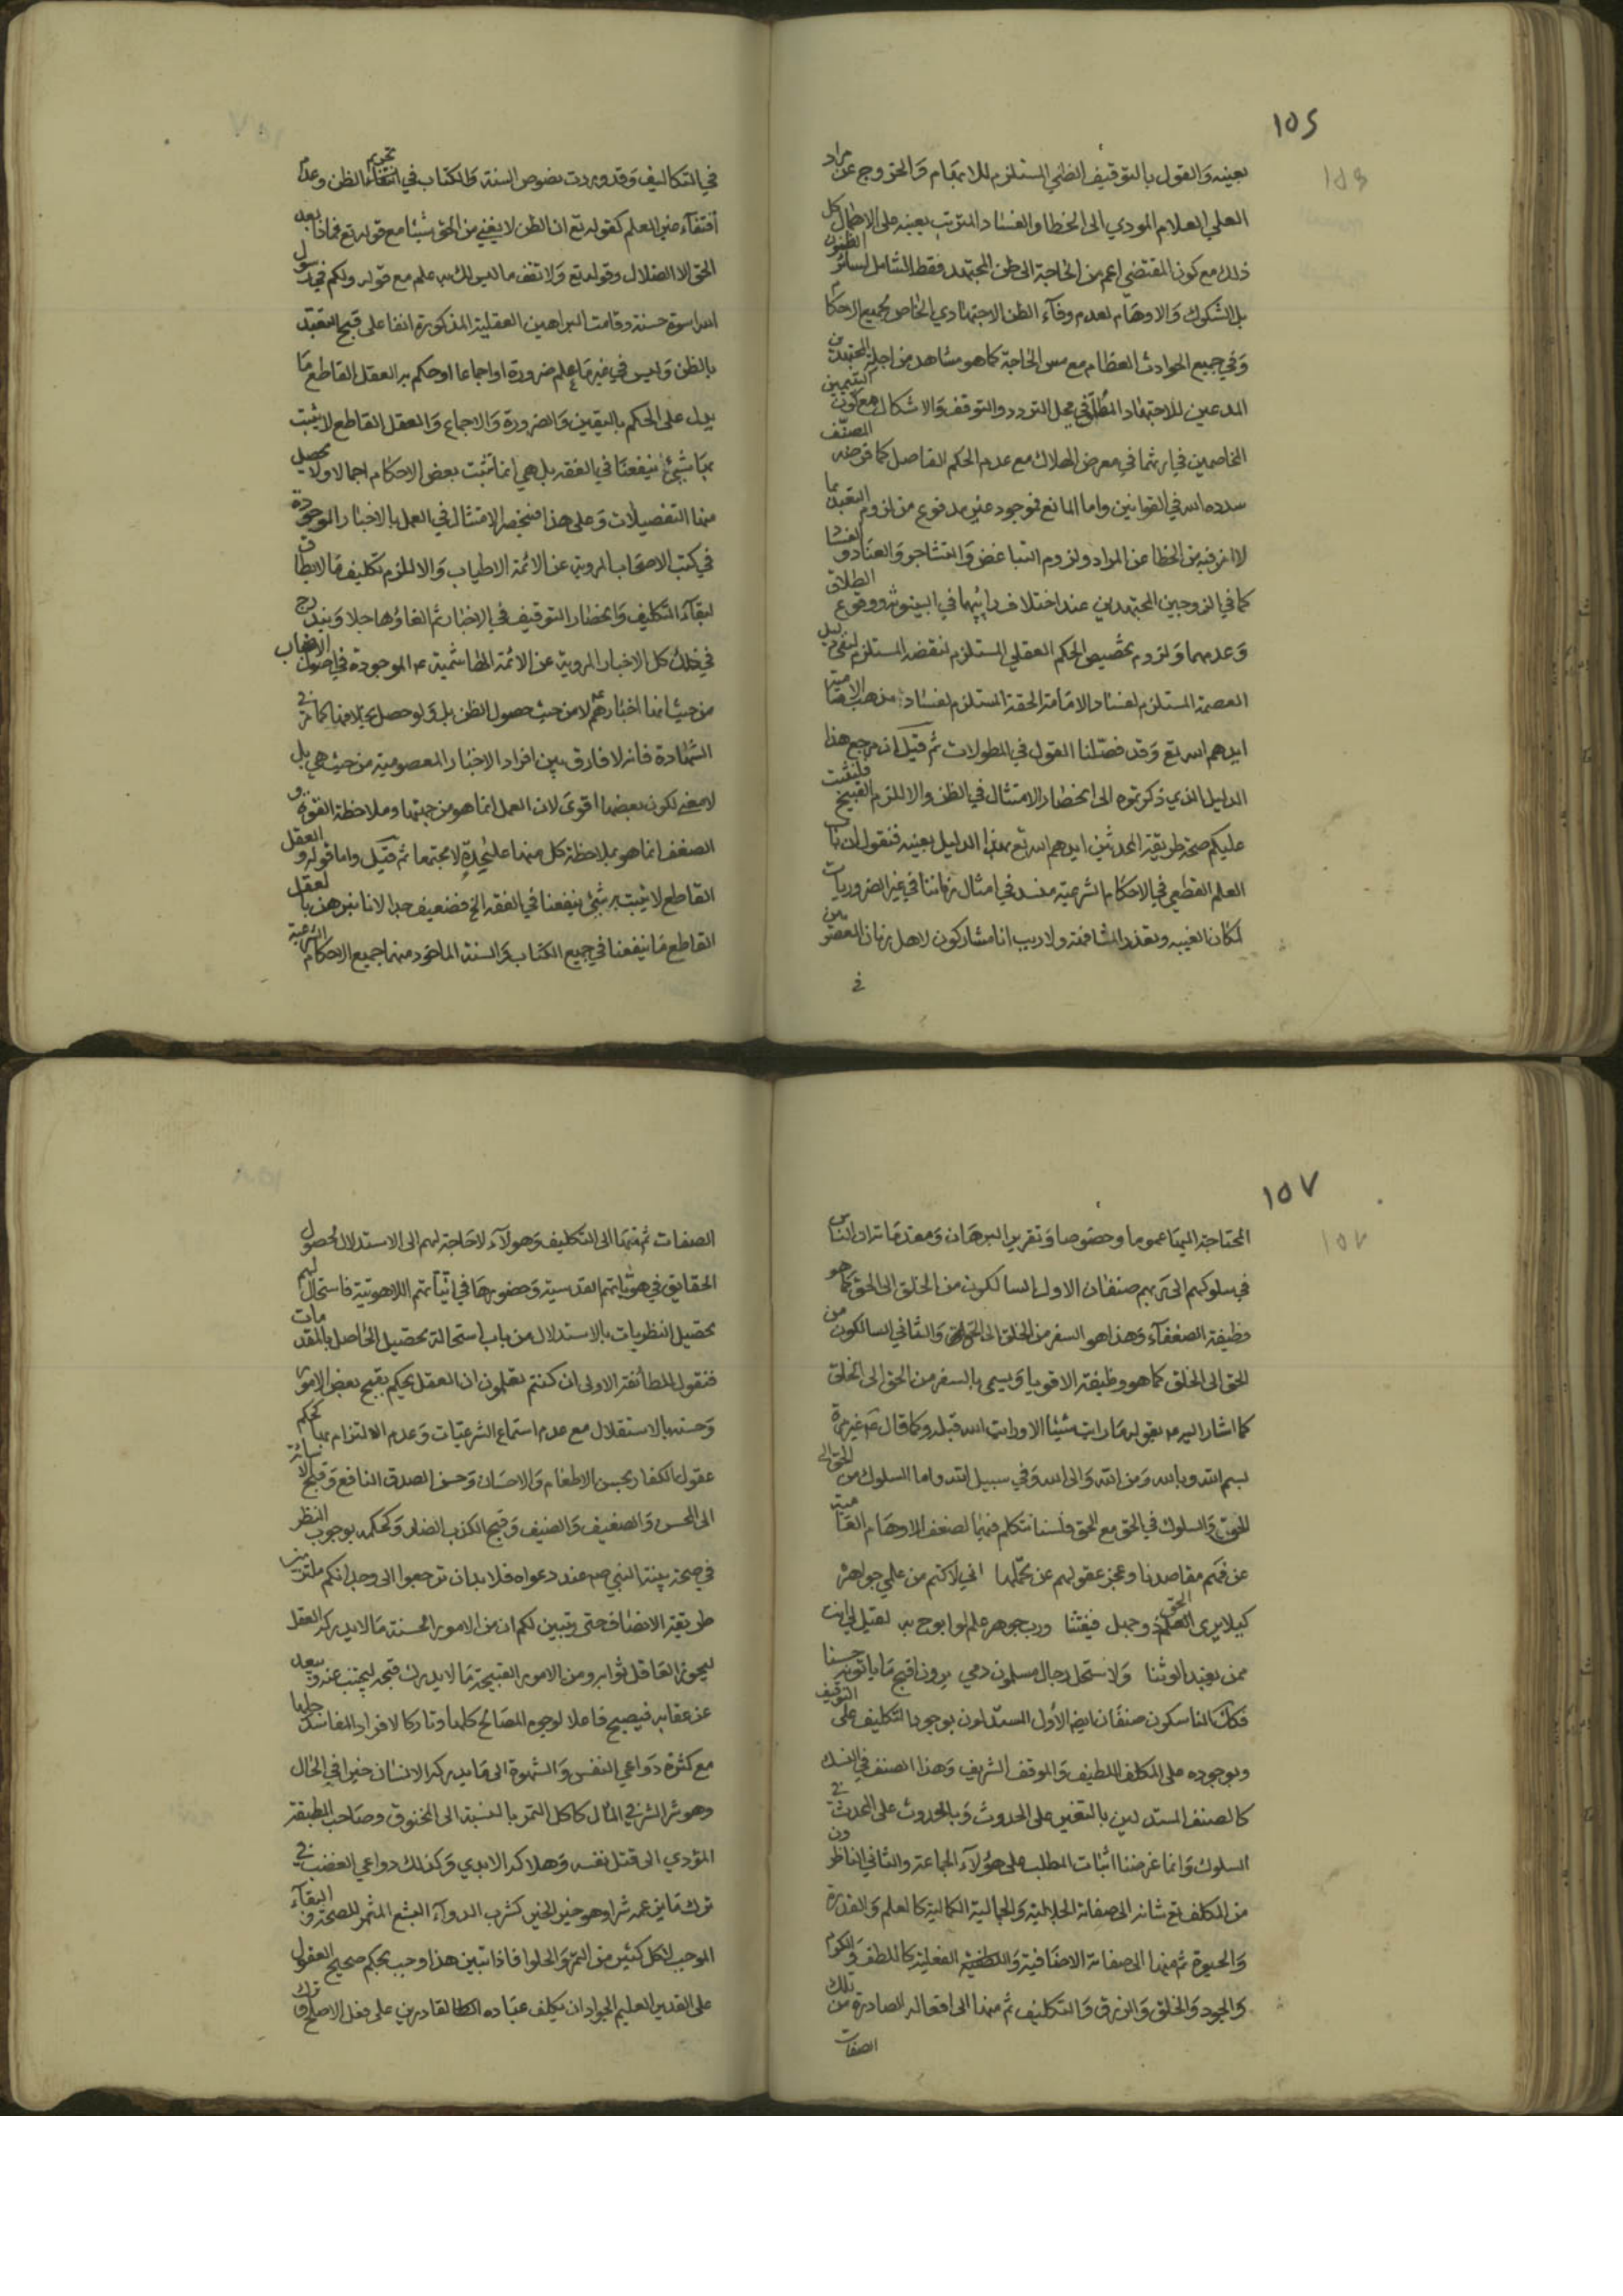 ١٥٦
بعينه والقول بالتوقيف الظني المستلزم للابهام والخروج عن مراد
العلي العلام المودي الى الخطا والفساد المترتب بعينه على الاهمال كل
ذلك مع كون المقتضي اعم من الحاجة الى ظن المجتهد فقط الشامل لسائر الظنون
بل الشكوك والاوهام لعدم وفاء الظن الاجتهادي الخاص بجميع الاحكام
وفي جميع الحوادث العظام مع مس الحاجة كما هو مشاهد من اجلة المجتهدين
المدعين للاجتهاد المطلق في محل التردد والتوقف والاشكال مع كون
الخاصمين في معرض الهلاك مع عدم الحكم الفاصل كما فرضه المصنف
سدده الله في القوانين واما المانع فوجود غير مدفوع من لزوم التعبد بما
لا من فيه من الخطا عن المراد ولزوم التباغض والتشاجر والعناد والفشا
كما في الزوجين المجتهدين عند اختلاف رائيهما في البينونة ووقوع الطلاق
وعدمهما ولزوم تخصيص الحكم العقلي المستلزم لنقضه المستلزم لنفي دليل
العصمة المستلزم لفساد الامامة الحقة المستلزم لفساد مذهب الامامية
ايدهم الله تع وقد فصلنا القول في المطولات ثم قيل ان مرجع هذا
الدليل الذي ذكرتموه الى انحصار الامتثال في الظن والا للزم القبيح فليثبت
عليكم صحة طريقة المحدثين ايدهم الله تع بهذا الدليل بعينه فنقول ان باب
العلم القطعي في الاحكام الشرعية منسد في امثال زماننا في غير الضروريات
لمكان الغيبه وتعذر المشافهة ولا ريب انا مشاركون لاهل زمان المعصومين
في
في التكاليف وقد وردت نصوص السنة والكتاب في تحريم اقتفاء الظن وعدم
اقتفاء غير العلم كقوله تع ان الظن لا يغني من الحق شيئا مع قوله تع فماذا بعد
الحق الا الضلال وقوله تع ولا تقف ما ليس لك به علم مع قوله ولكم في رسول
الله اسوة حسنة وقامت البراهين العقلية المذكورة انفا على قبح التعبد
بالظن وليس في غير ما علم ضرورة او اجماعا او حكم به العقل القاطع ما
يدل على الحكم باليقين والضرورة والاجماع والعقل القاطع لا يثبت
بها شيئ ينفعنا في الفقه بل هي انما تثبت بعض الاحكام اجمالا ولا يحصل
منها التفصيلات وعلى هذا فينحصر الامتثال في العمل بالاخبار الموجودة
في كتب الاصحاب المروية عن الائمة الاطياب والا للزم تكليف ما لا يطاق
لبقاء التكليف وانحصار التوقيف في الاخبار ثم الغاؤها جلا ويندرج
في ذلك كل الاخبار المروية عن الائمة الهاشمية عم الموجودة في اصول الاصحاب
من حيث انها اخبارهم لا من حيث حصول الظن بل ولو حصل بخلافها كما مر في
الشهادة فانه لا فارق بين افراد الاخبار المعصومية من حيث هي بل
لا معنى لكون بعضها اقوى لان العمل انما هو من جهتها وملاحظة القوة و
الضعف انما هو بملاحظة كل منها على حدة لا مجتمعا ثم قيل واما قوله والعقل
القاطع لا يثبت به شيئ ينفعنا في الفقه الخ فضعيف جدا لانا نبرهن بالعقل
القاطع ما ينفعنا في جميع الكتاب والسنة الماخوذ منهما جميع الاحكام الشرعية
١٥٧
المحتاجة اليها عموما وخصوصا وتقرير البرهان ومقدماته ان الناس
في سلوكهم الى ربهم صنفان الاول السالكون من الخلق الى الحق كما هو
وظيفة الضعفاء وهذا هو السفر من الخلق الى الحق والثاني السالكون من
الحق الى الخلق كما هو وظيفة الاقويا ويسمى بالسفر من الحق الى الخلق
كما اشار اليه بقوله ما رايت شيئا الا ورايت الله قبله وكما قال عم غير مرة
بسم الله وبالله ومن الله والى الله وفي سبيل الله واما السلوك من الحق الى
الحق والسلوك في الحق مع الحق فلسنا نتكلم فيهما لضعف الاوهام العامية
عن فهم مقاصدنا وعجز عقولهم عن تحملها اني لاكتم من علمي جواهره
كيلا يرى الحق ذو جهل فيفتنا ورب جوهر علم لو ابوح به لقيل لي انت
ممن يعبد الوثنا ولا ستحل رجال مسلمون دمي يرون اقبح ما ياتونه حسنا
فكذلك الناسكون صنفان ايضا الاول المستدلون بوجود التكليف على التوقيف
وبوجوده على المكلف اللطيف والموقف الشريف وهذا الصنف في النسك
كالصنف المستدلين بالتغير على الحدوث وبالحدوث على المحدث في
السلوك وانما غرضنا اثبات المطلب على هؤلاء الجماعة والثاني الناظرون
من المكلف تع شانه الى صفاته الجلالية والجمالية الكمالية كالعلم والقدرة
والحيوة ثم منها الى صفاته الاضافية الفعلية كاللطف والكرم
والجود والخلق والرزق والتكليف ثم منها الى افعاله الصادرة من تلك
الصفات
الصفات ثم منها الى التكليف وهولاء لا حاجة لهم الى الاستدلال لحصول
الحقايق في هوياتهم القدسية وحضورها في انياتهم اللاهوتية فاستحال لهم
تحصيل النظريات بالاستدلال من باب استحالة تحصيل الحاصل بالمقدمات
فنقول للطائفة الاولى ان كنتم تعلمون ان العقل يحكم بقبح بعض الامور
وحسنها بالاستقلال مع عدم استماع الشرعيات وعدم الالتزام بها كحكم
عقول الكفار بحسن الاطعام والاحسان وحسن الصدق النافع وقبح الاسائة
الى المحسن والضعيف والضيف وقبح الكذب الضار وكحكمه بوجوب النظر
في صحة بينة النبي ص عند دعواه فلا بد ان ترجعوا الى وجدانكم ملتزمين
طريقة الانصاف حتى يتبين لكم ان من الامور الحسنة ما لا يدركه العقل
ليحوز العاقل ثوابه ومن الامور القبيحة ما لا يدرك قبحه ليجتنب عنه ويبعد
عن عقابه فيصبح فاعلا لوجوه المصالح كلها وتاركا لافراد المفاسد جلها
مع كثرة دواعي النفس والشهوة الى ما يدركه الانسان خيرا في الحال
وهو شر الشر في المال كاكل التمر بالنسبة الى المخنوق وصاحب المطبقة
المؤدي الى قتل نفسه وهلاكه الابدي وكذلك دواعي الغضب في
ترك ما يزعمه شرا وهو خير الخير كشرب الدواء البشع المثمر للصحة والبقاء
الموجب لاكل كثير من التمر والحلوا فاذا تبين هذا وجب بحكم صحيح العقول
على القدير العليم الجواد ان يكلف عباده القادرين على فعل الاصلح وترك